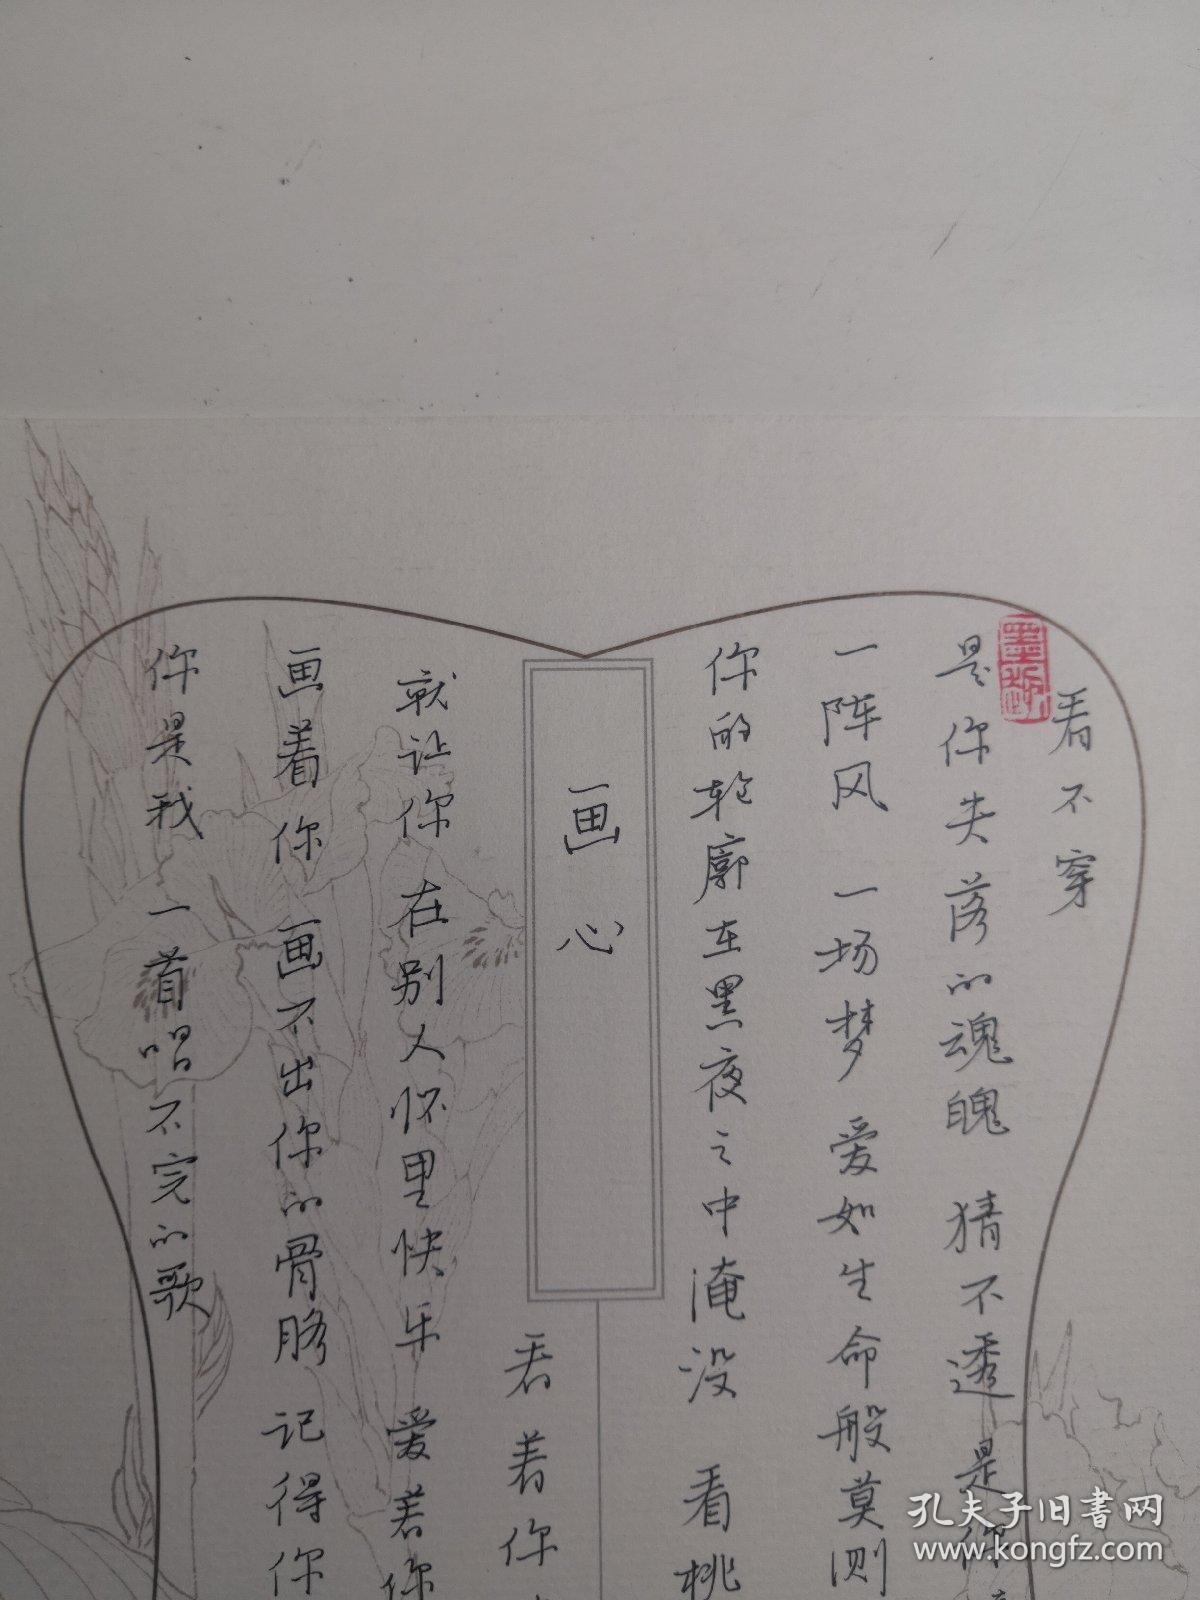 看不穿
是你失落的魂魄 猜不透 是你
一阵风 一场梦 爱如生命般莫测
你的轮廓在黑夜之中淹没 看桃
画心
看着你
就让你在别人怀里快乐 爱着你
画着你 画不出你的骨骼 记得你
你是我 一首唱不完的歌
孔夫子旧书网
www.kongfz.com